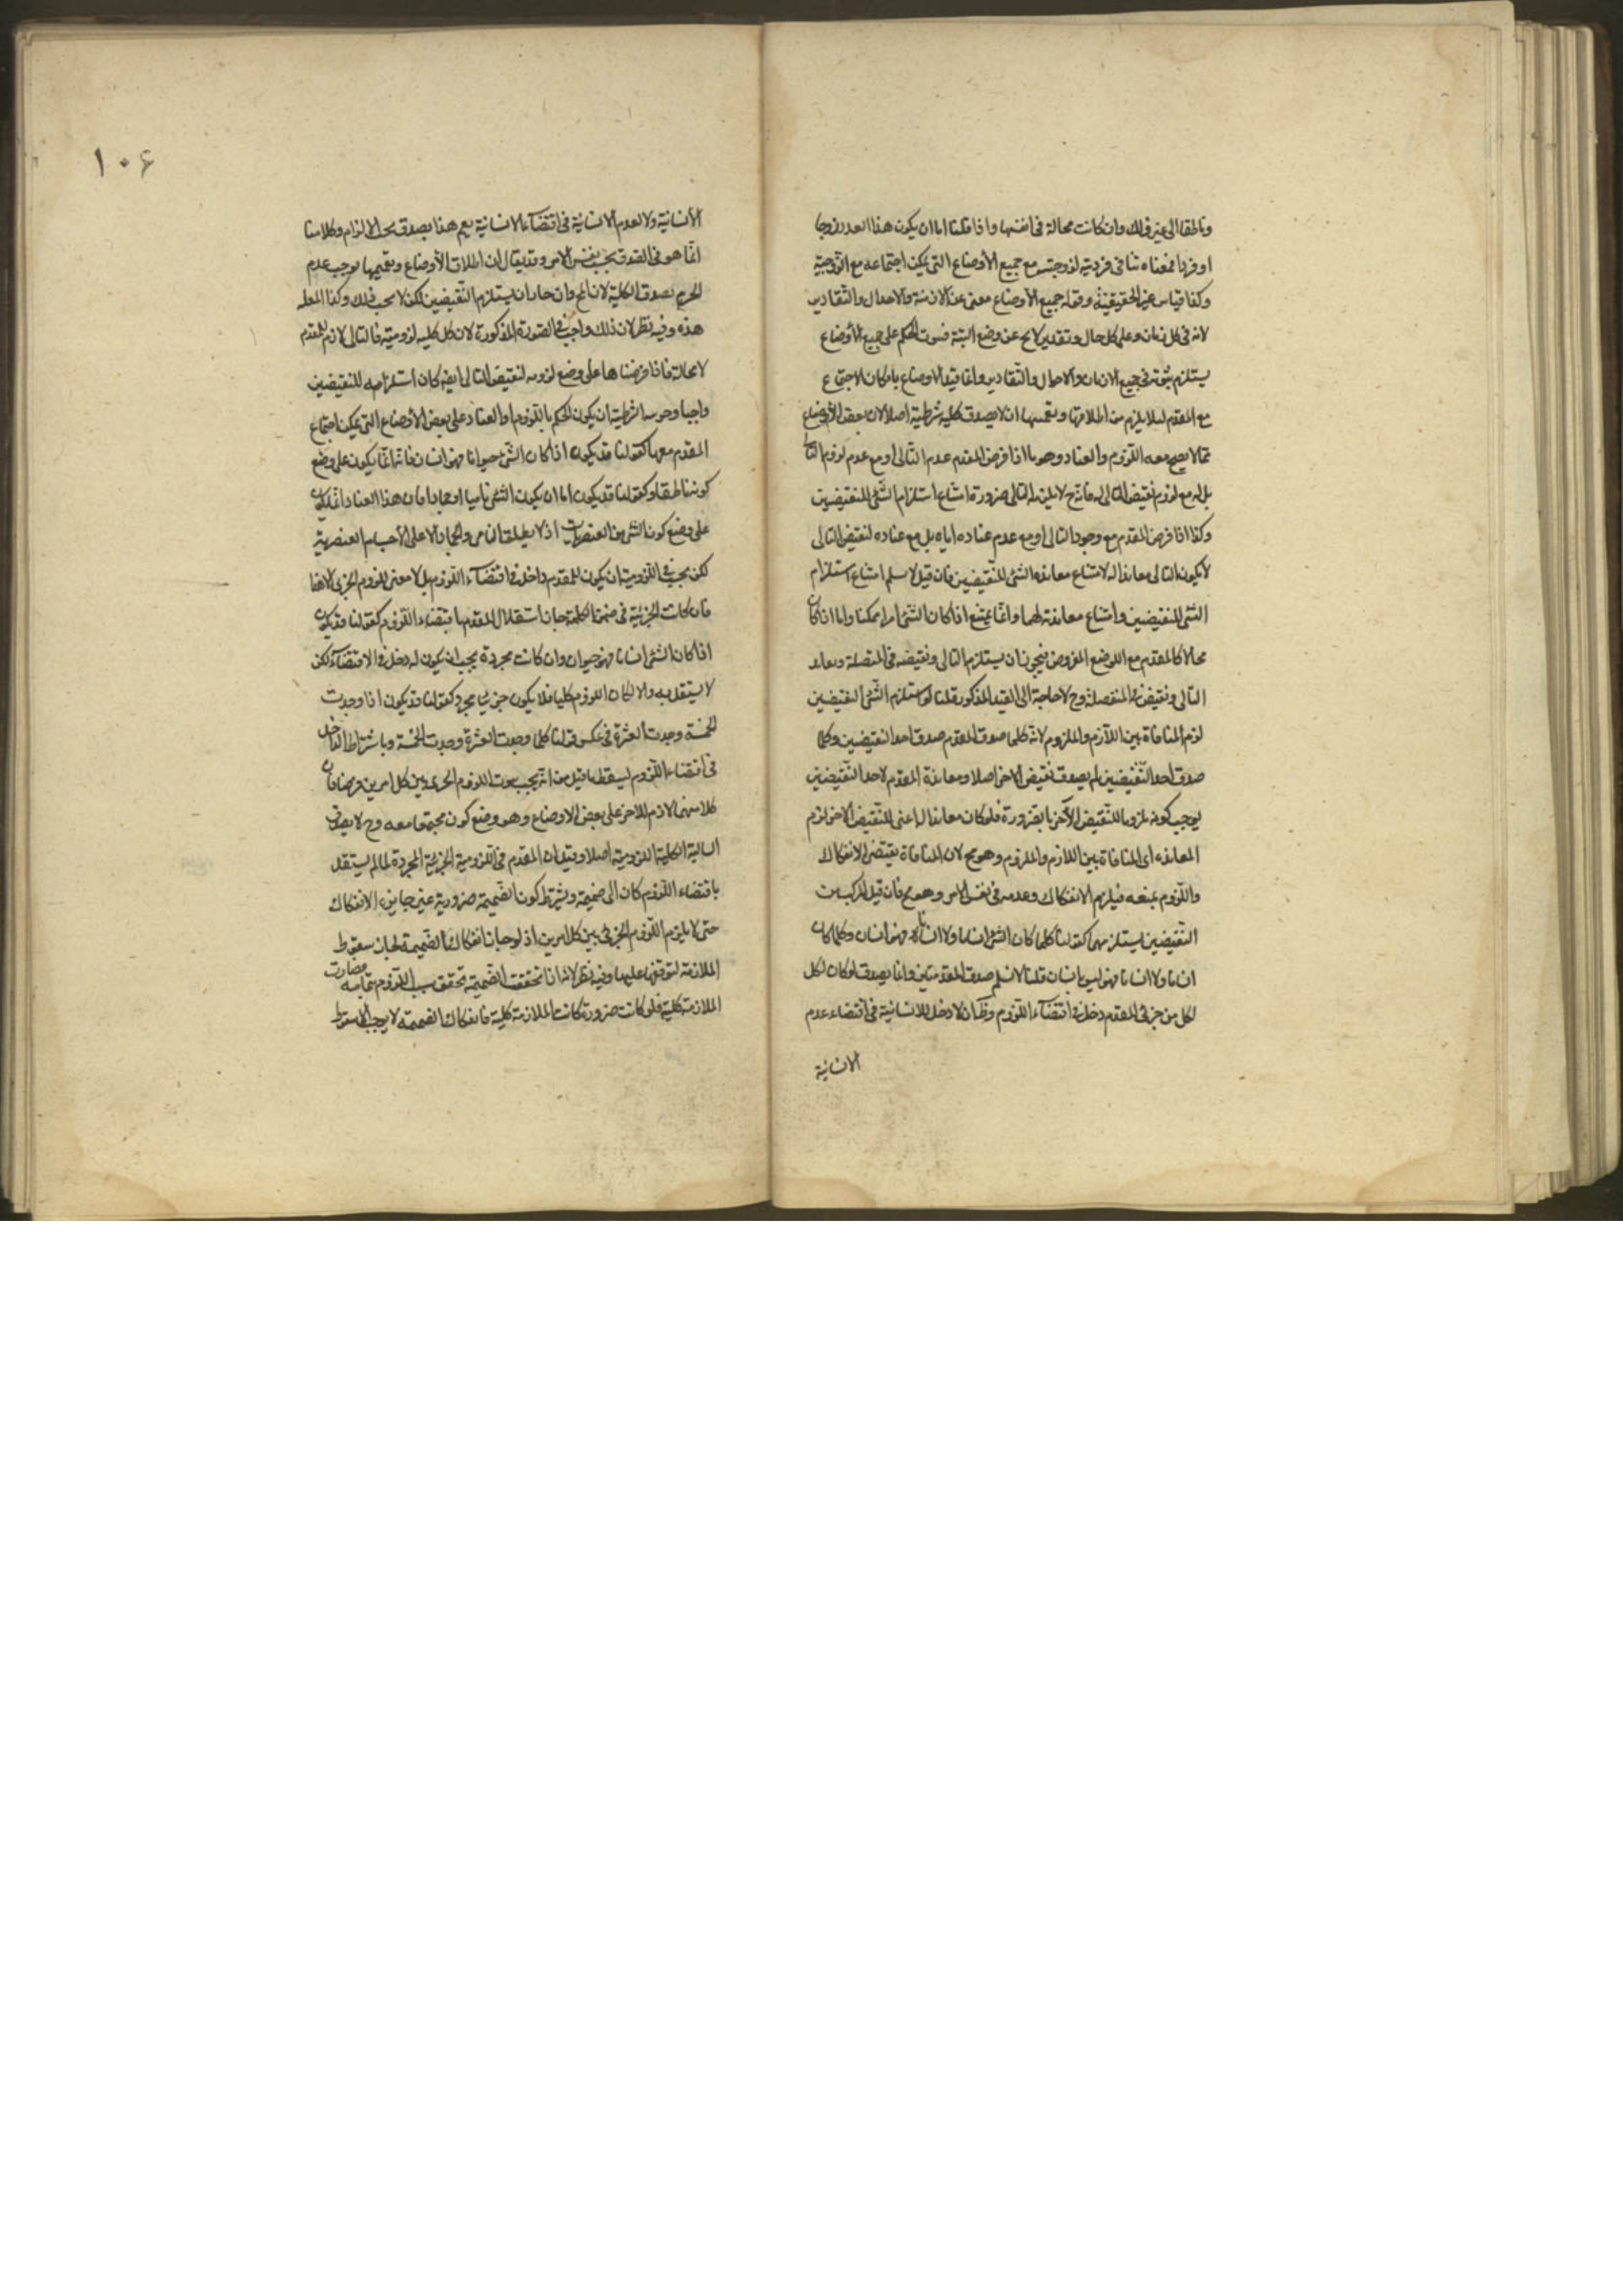 وناطقا الى غير ذلك وان كانت محالة فى انفسها واذا قلنا اما ان يكون هذا العدد زوجا
او فردا فمعناه تنافى فرديته لزوجيته مع جميع الأوضاع التى يمكن اجتماعه مع الزوجية
وكذا قياس غير الحقيقيّة وقوله جميع الأوضاع مغنى عن الازمنة والاحوال والتقادير
لانه فى كل زمان وعلى كل حال وتقدير لا يخ عن وضع البتة فثبوت الحكم على جميع الأوضاع
يستلزم ثبوته فى جميع الازمان والاحوال والتقادير وانما قيد الاوضاع بامكان الاجتماع
مع المقدم لئلا يلزم من اطلاقها وتعميمها ان لا يصدق كلية شرطية اصلا لان بعض الأوضاع
ممّا لا يصح معه اللزوم والعناد وهو ما اذا فرض المقدم عدم التالى او مع عدم لزوم التالى
بل له مع لزوم نقيض التالى له فانه ح لا يلزمه التالى ضرورة امتناع استلزام الشئ للنقيضين
وكذا اذا فرض المقدم مع وجود التالى او مع عدم عناده اياه بل مع عناده لنقيض التالى
لا يكون التالى معاندا له لامتناع معاندة الشئ للنقيضين فان قيل لا نسلم امتناع استلزام
الشئ للنقيضين وامتناع معاندته لهما وانما يمتنع اذا كان الشئ امرا ممكنا واما اذا كان
محالا كالمقدم مع الوضع المفروض فيجوز ان يستلزم التالى ونقيضه فى المتصلة ويعاند
التالى ونقيضه فى المنفصلة وح لا حاجة الى القيد المذكور قلنا لو استلزم الشئ النقيضين
لزم المنافاة بين اللازم والملزوم لانه كلما صدق المقدم صدق احد النقيضين وكلما
صدق احد النقيضين لم يصدق نقيض الاخر اصلا ومعاندة المقدم لاحد النقيضين
يوجب كونه ملزوما للنقيض الآخر بالضرورة فلو كان معاندا له اعنى للنقيض الاخر لزم
المعانده اى المنافاة بين اللازم والملزوم وهو مح لان المنافاة يقتضى الانفكاك
واللزوم بمنعه فيلزم الانفكاك وعدمه فى نفس الامر وهو مح فان قيل المركب من
النقيضين يستلزمهما كقولنا كلما كان الشئ انسانا ولا انسانا فهو انسان وكلما كان
انسانا ولا انسانا فهو ليس بانسان قلنا لا نسلم صدق المقدمتين وانما يصدق لو كان لكل
لكل من جزئى المقدم دخل فى اقتضاء اللزوم وظ ان لا دخل للانسانية فى اقتضاء عدم
الانسانية
١٠٦
الأنسانية ولا لعدم الانسانية فى اقتضاء الانسانية نعم هذا يصدق بحسب الالزام وكلامنا
انّما هو فى الصدق بحسب نفس الامر وقد يقال ان اطلاق الأوضاع وتعميمها يوجب عدم
الجزم بصدق الكلية لانا نمنع وان جاز ان يستلزم النقيضين لكن لا يجب ذلك وكذا المعاندة
هذه وفيه نظر لان ذلك واجب فى الصورة المذكورة لان كل كلية لزومية فالتالى لازم للمقدم
لا محالة فاذا فرضناها على وضع لزومه لنقيض التالى ايضه كان استلزامه للنقيضين
واجبا وجزئية الشرطية ان يكون الحكم باللزوم او العناد على بعض الأوضاع التى يمكن اجتماع
المقدم معها كقولنا قد يكون اذا كان الشئ حيوانا فهو انسان فانه انما يكون على وضع
كونه ناطقا وكقولنا قد يكون اما ان يكون الشئ ناميا او جمادا فان هذا العناد انما يكون
على وضع كون الشئ من العنصريات اذ لا يطلق النامى والجماد الا على الأجسام العنصرية
لكن يجب فى اللزومية ان يكون للمقدم دخل فى اقتضاء اللزوم بل لا معنى للزوم الجزئى الا هذا
فان كانت الجزئية فى ضمن الكلية جاز استقلال المقدم باقتضاء اللزوم كقولنا قد يكون
اذا كان الشئ انسانا فهو حيوان وان كانت مجردة يجب ان يكون له دخل فى الاقتضاء لكن
لا يستقل به والا لكان اللزوم كليا فلا يكون جزئيا مجرد كقولنا قد يكون اذا وجدت
الخمسة وجدت العشرة فى عكس قولنا كلما وجدت العشرة وجدت الخمسة وباشتراط الدخل
فى اقتضاء اللزوم ليسقط ما قيل من انه يجب ثبوت اللزوم الجزئى بين كل امرين فرضا فان
كلا منهما لازم للاخر على بعض الاوضاع وهو وضع كونه مجتمعا معه وح لا يصدق
السالبة الكلية اللزومية اصلا وقيل ان المقدم فى اللزومية الجزئية المجردة لما لم يستقل
باقتضاء اللزوم كان الى ضميمة ويشترط كون الضميمة ضرورية غير جايز الانفكاك
حتى لا يلزم اللزوم الجزئى بين كل امرين اذ لو جاز انفكاك الضميمة لجاز سقوط
الملازمة لتوقفها عليها وفيه نظر لانه اذا تحققت الضميمة تحقق سبب اللزوم بتمامه فصارت
الملازمة كلية فلو كانت ضرورية كانت الملازمة كلية فانفكاك الضميمة لا يوجب الا سقوط